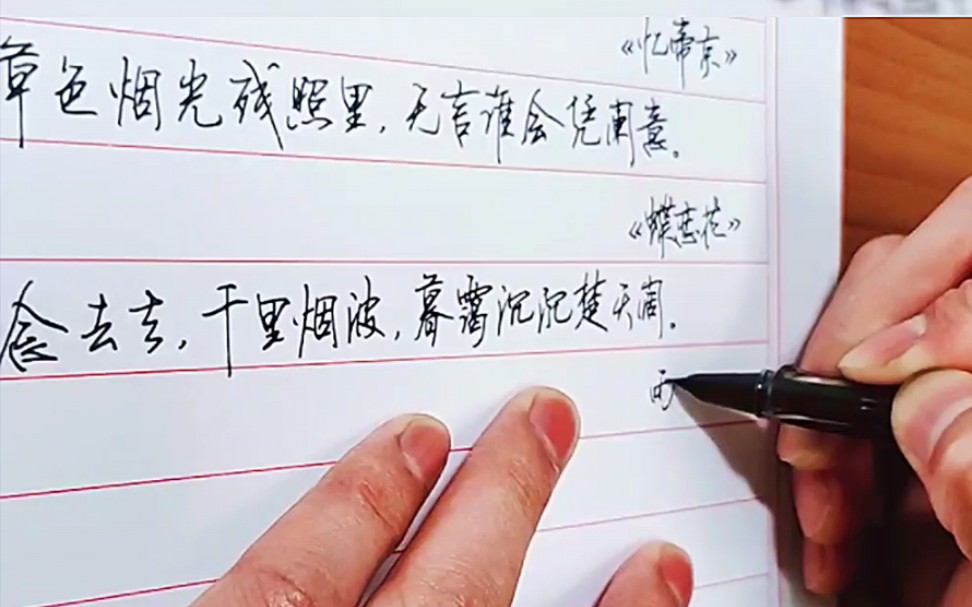 《忆帝京》
草色烟光残照里，无言谁会凭阑意。
《蝶恋花》
念去去，千里烟波，暮霭沉沉楚天阔。
雨